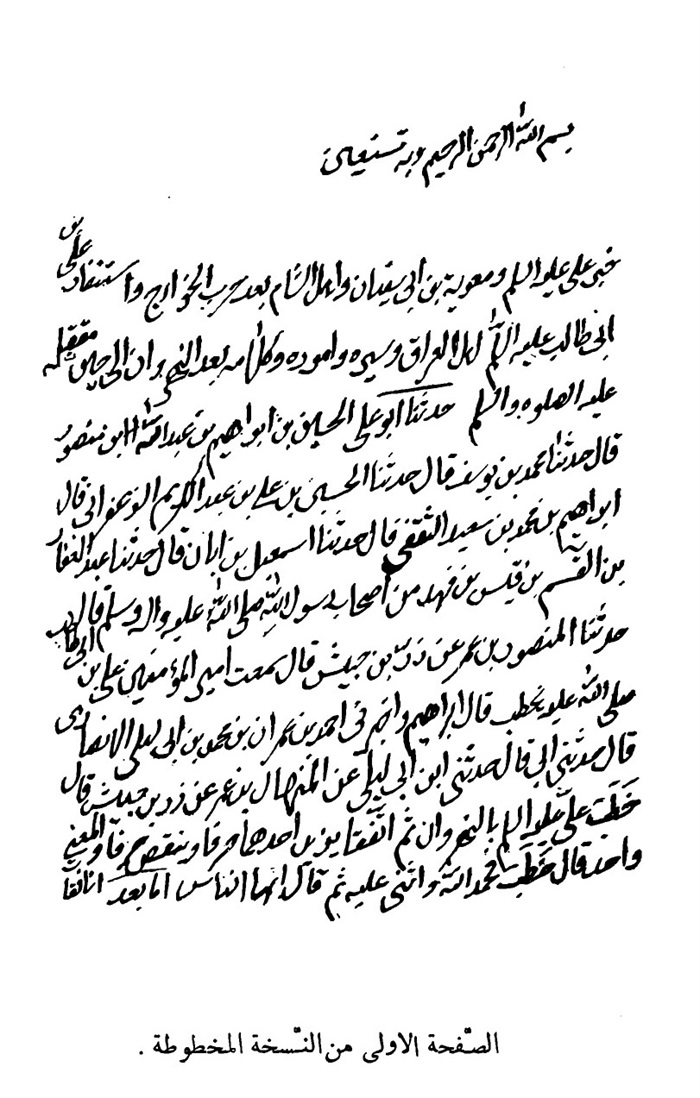 بسم الله الرحمن الرحيم وبه نستعين
على عليه السلم ومعوية بن ابى سفيان واهل الشام بعد حرب الخوارج واستنفار على بن
ابى طالب عليه السلم اهل العراق وسيره واموره وكلامه بعد النهروان الى حين مقتله
عليه الصلوة والسلم حدثنا ابو على الحسين بن ابراهيم بن عبدالله ابن منصور
قال حدثنا محمد بن يوسف قال حدثنا الحسن بن على بن عبد الكريم الزعفرانى قال
ابراهيم بن محمد بن سعيد الثقفى قال حدثنا اسمعيل بن ابان قال حدثنا عبد الغفار
بن القسم بن قيس بن فهد من اصحاب رسول الله صلى الله عليه واله وسلم قال
حدثنا المنصور بن عمر عن زر بن حبيش قال سمعت امير المؤمنين على بن ابى طالب
صلى الله عليه يخطب قال ابراهيم واخبرنى احمد بن عمران بن محمد بن ابى ليلى الانصارى
قال حدثنى ابى قال حدثنى ابن ابى ليلى عن المنهال بن عمر عن زر بن حبيش قال
خطب على عليه السلم بالنهروان ثم اتفقا يزيد احدهما حرفا وينقص حرفا والمعنى
واحد قال خطب فحمد الله واثنى عليه ثم قال ايها الناس اما بعد انا فقأت
الصّفحة الاولى من النّسخة المخطوطة .